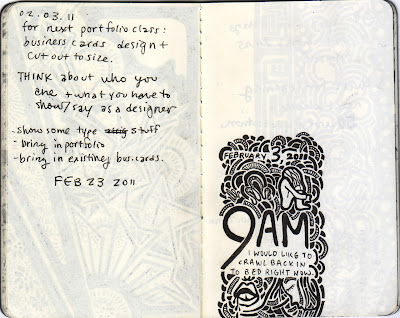 02.03.11
for next portfolio class:
business cards design +
cut out to size.
THINK about who you
are + what you have to
show/say as a designer
- show some type stuff
- bring in portfolio
- bring in existing bus. cards.
FEB 23 2011
FEBRUARY 3, 2011
9AM
I WOULD LIKE TO
CRAWL BACK IN
TO BED RIGHT NOW.